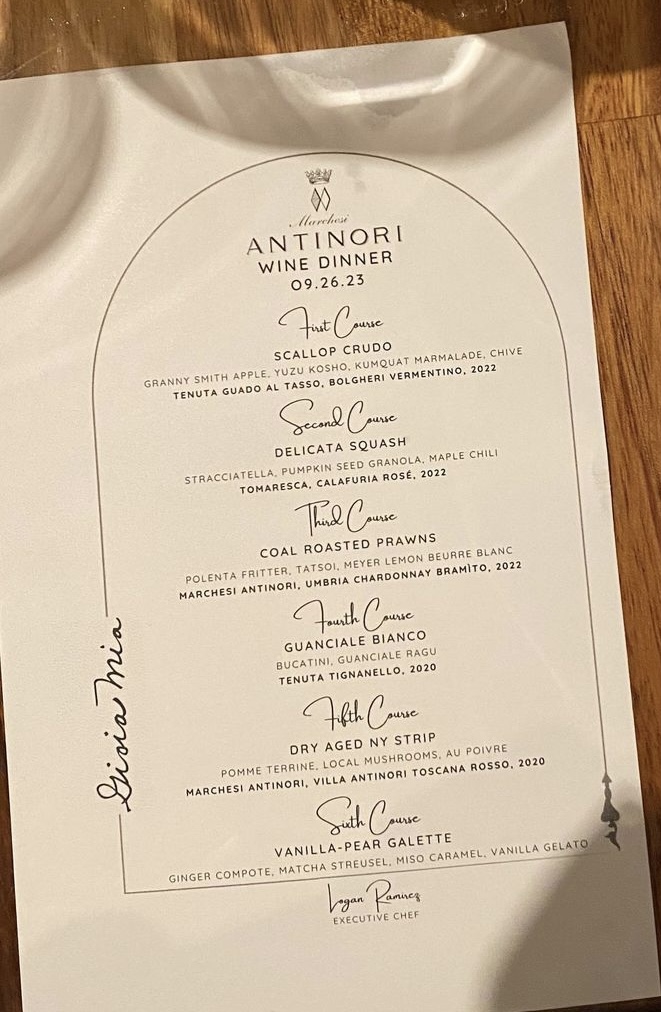 Marchesi
ANTINORI
WINE DINNER
09.26.23
First Course
SCALLOP CRUDO
GRANNY SMITH APPLE, YUZU KOSHO, KUMQUAT MARMALADE, CHIVE
TENUTA GUADO AL TASSO, BOLGHERI VERMENTINO, 2022
Second Course
DELICATA SQUASH
STRACCIATELLA, PUMPKIN SEED GRANOLA, MAPLE CHILI
TOMARESCA, CALAFURIA ROSÉ, 2022
Third Course
COAL ROASTED PRAWNS
POLENTA FRITTER, TATSOI, MEYER LEMON BEURRE BLANC
MARCHESI ANTINORI, UMBRIA CHARDONNAY BRAMÌTO, 2022
Fourth Course
GUANCIALE BIANCO
BUCATINI, GUANCIALE RAGU
TENUTA TIGNANELLO, 2020
Fifth Course
DRY AGED NY STRIP
POMME TERRINE, LOCAL MUSHROOMS, AU POIVRE
MARCHESI ANTINORI, VILLA ANTINORI TOSCANA ROSSO, 2020
Sixth Course
VANILLA-PEAR GALETTE
GINGER COMPOTE, MATCHA STREUSEL, MISO CARAMEL, VANILLA GELATO
Logan Ramirez
EXECUTIVE CHEF
Gioia Mia